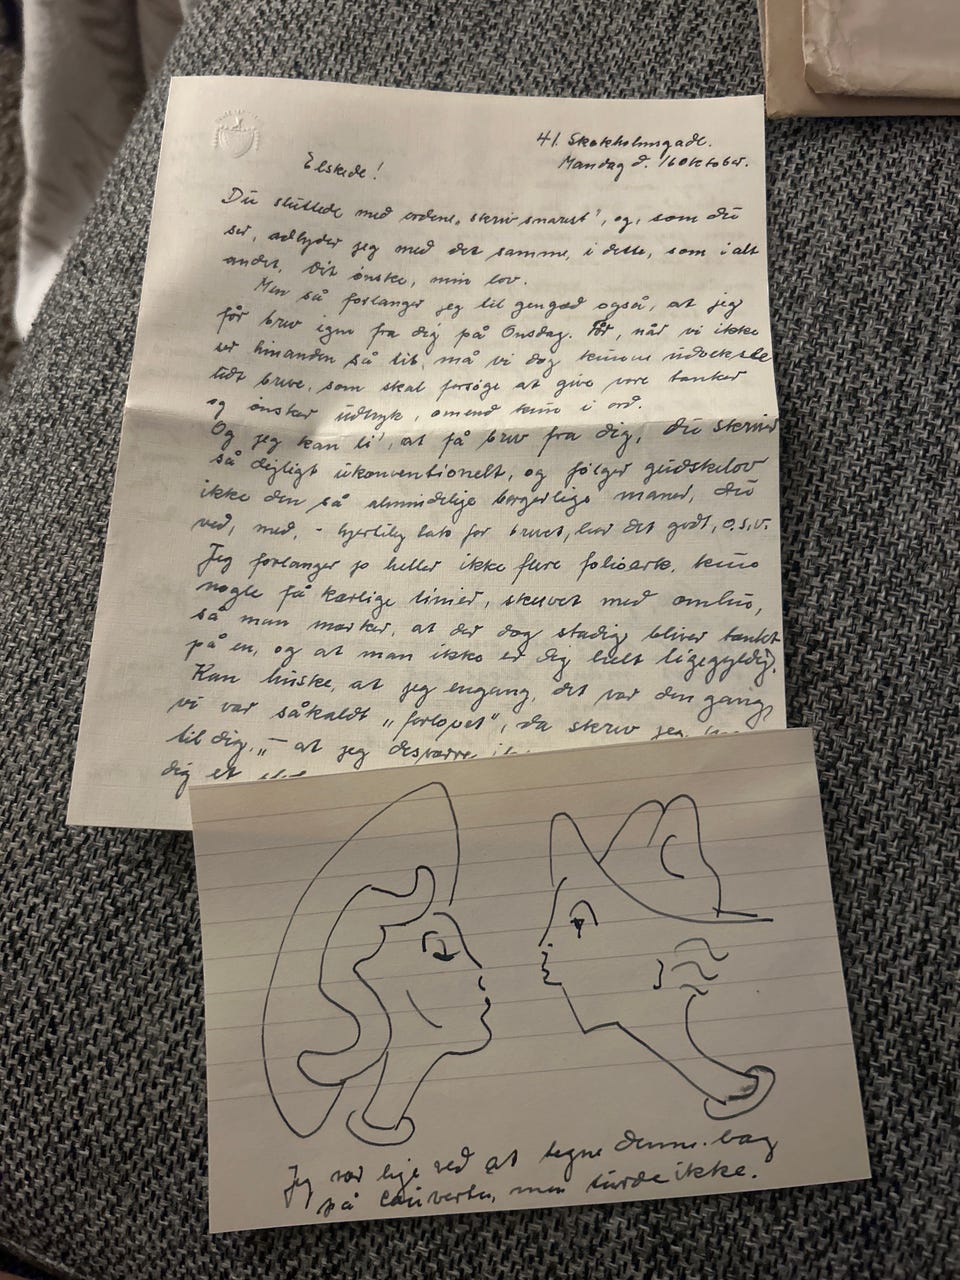 41. Stokholmsgade.
Mandag d. 16 Oktober.
Elskede!
Du sluttede med ordene, „skriv snarest", og, som du
ser, adlyder jeg med det samme, i dette, som i alt
andet. Dit ønske, min lov.
Men så forlanger jeg til gengæd også, at jeg
får brev igen fra dig på Onsdag. For, når vi ikke
ser hinanden så tit, må vi dog kunne udveksle
tidt breve, som skal forsøge at give vore tanker
og ønsker udtryk, omend kun i ord.
Og jeg kan li', at få brev fra dig, du skriver
så dejligt ukonventionelt, og følger gudskelov
ikke den så almindelige borgerlige maner, du
ved, med, - hjertelig tak for brevet, har det godt, o.s.v.
Jeg forlanger jo heller ikke flere folioark, kun
nogle få kærlige linier, skrevet med omhu,
så man mærker, at der dog stadig bliver tænkt
på en, og at man ikke er dig helt ligegyldig.
Kan huske, at jeg engang, det var den gang,
vi var såkaldt „forlovet", da skrev jeg
til dig, „- at jeg desværre
dig et
Jeg var lige ved at tegne denne bag
på Couverten, men turde ikke.